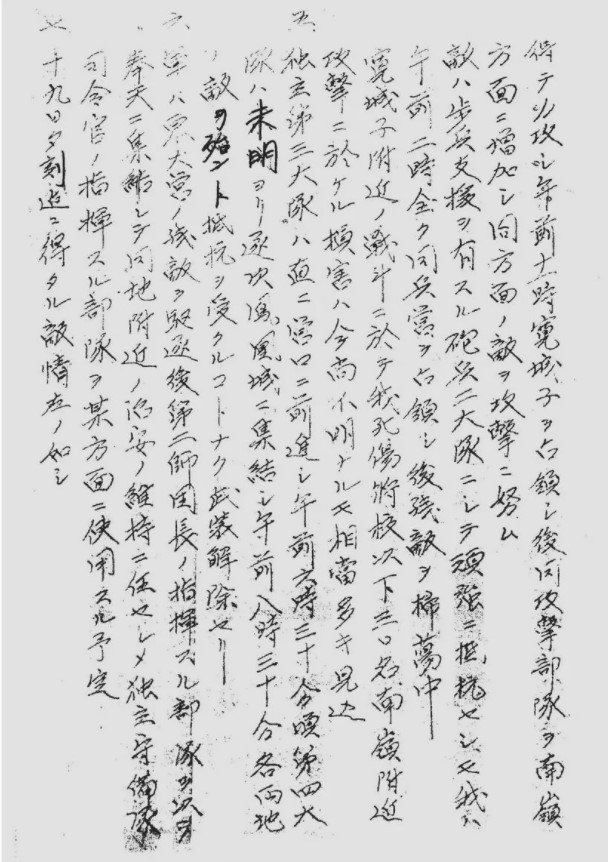 得テ攻シ午前十一時寛城子ヲ占領シ後同攻撃部隊ヲ南嶺
方面ニ増加シ同方面ノ敵ヲ攻撃ニ努ム
敵ハ歩兵支援ヲ有スル砲兵二大隊ニシテ頑強ニ抵抗セシモ我ハ
午前二時全ク同兵営ヲ占領シ後残敵ヲ掃蕩中
寛城子附近ノ戦斗ニ於テ我死傷将校以下三〇名南嶺附近
攻撃ニ於ケル損害ハ今尚不明ナルモ相当多キ見込
五、独立第三大隊ハ直ニ営口ニ前進シ午前六時三十分頃第四大
隊ハ未明ヨリ逐次鳳凰城ニ集結シ午前八時三十分各両地
ノ敵ヲ殆ント抵抗ヲ受クルコトナク武装解除セリ
六、軍ハ東大営ノ残敵ヲ駆逐後第二師団長ノ指揮スル部隊ヲ以テ
奉天ニ集結シテ同地附近ノ治安ノ維持ニ任セシメ独立守備隊
司令官ノ指揮スル部隊ヲ某方面ニ使用スル予定
七、十九日夕刻迄ニ得タル敵情左ノ如シ